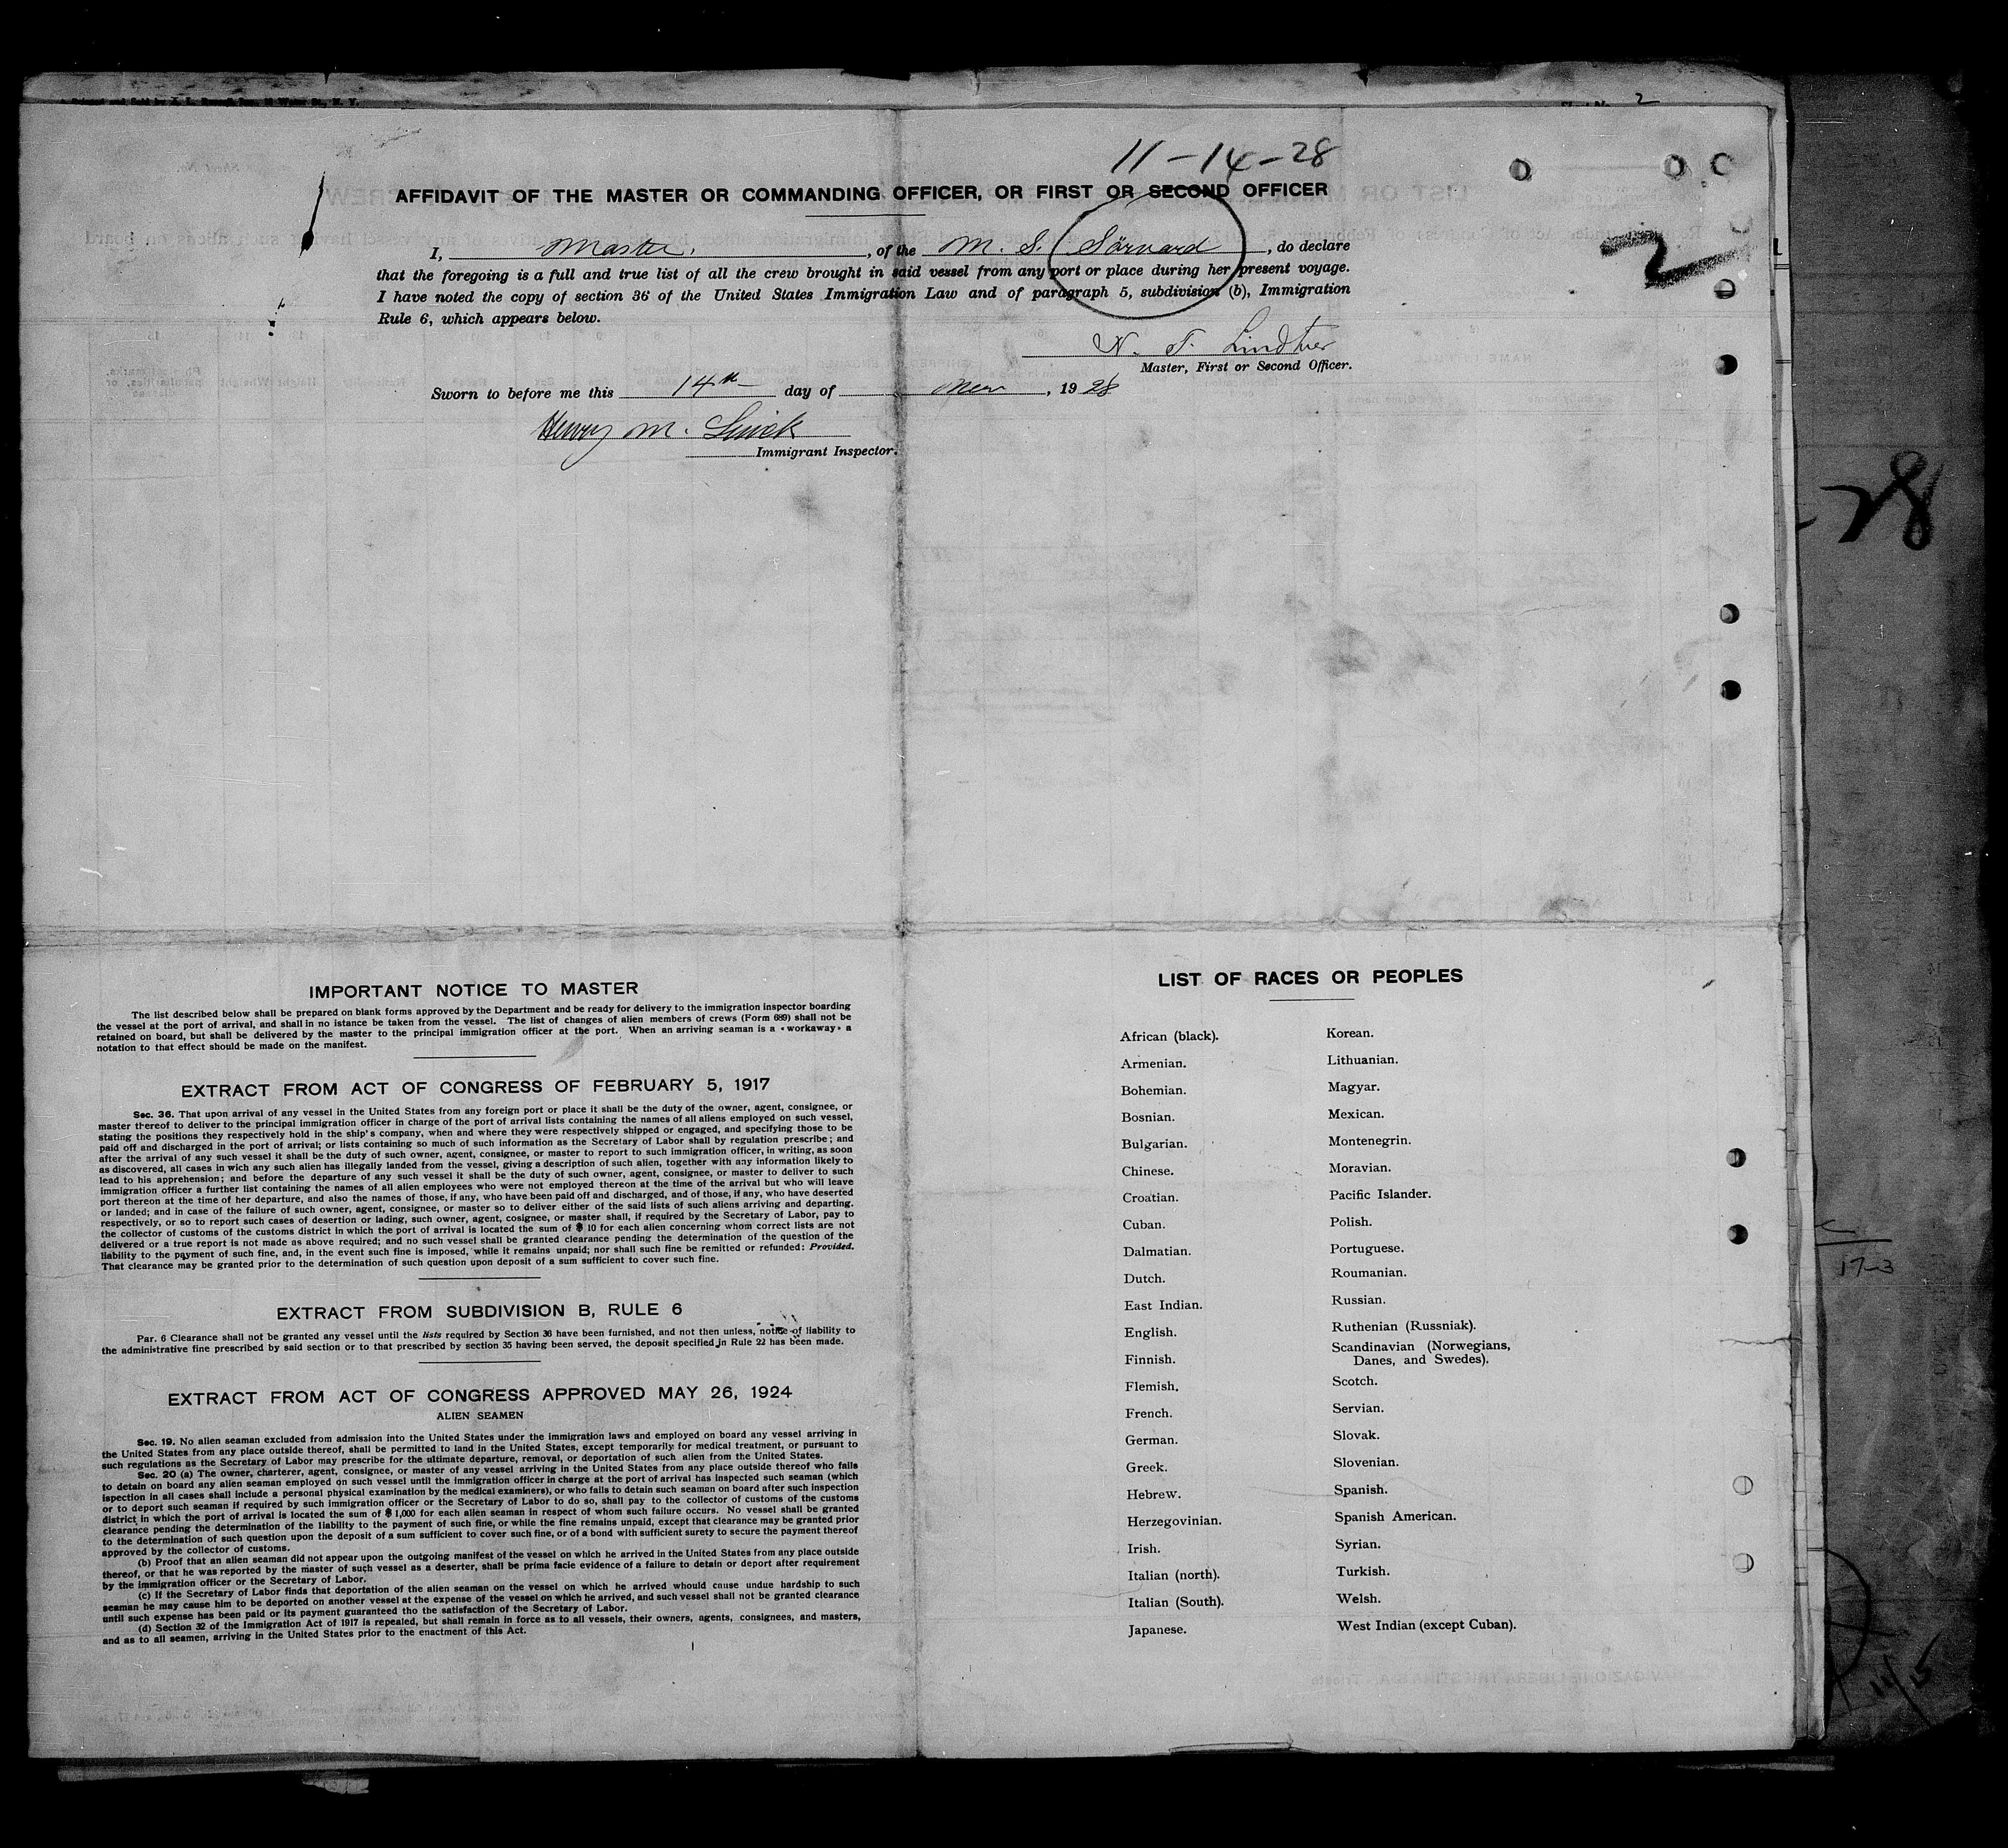 2
11-14-28
AFFIDAVIT OF THE MASTER OR COMMANDING OFFICER, OR FIRST OR SECOND OFFICER
I, Master, of the M. S. Sörvard, do declare
that the foregoing is a full and true list of all the crew brought in said vessel from any port or place during her present voyage.
I have noted the copy of section 36 of the United States Immigration Law and of paragraph 5, subdivision (b), Immigration
Rule 6, which appears below.
2
N. T. Lindtner
Master, First or Second Officer.
Sworn to before me this 14th day of Nov, 1928
Henry M.
Immigrant Inspector.
28
IMPORTANT NOTICE TO MASTER
The list described below shall be prepared on blank forms approved by the Department and be ready for delivery to the immigration inspector boarding
the vessel at the port of arrival, and shall in no istance be taken from the vessel. The list of changes of alien members of crews (Form 689) shall not be
retained on board, but shall be delivered by the master to the principal immigration officer at the port. When an arriving seaman is a «workaway» a
notation to that effect should be made on the manifest.
EXTRACT FROM ACT OF CONGRESS OF FEBRUARY 5, 1917
Sec. 36. That upon arrival of any vessel in the United States from any foreign port or place it shall be the duty of the owner, agent, consignee, or
master thereof to deliver to the principal immigration officer in charge of the port of arrival lists containing the names of all aliens employed on such vessel,
stating the positions they respectively hold in the ship's company, when and where they were respectively shipped or engaged, and specifying those to be
paid off and discharged in the port of arrival; or lists containing so much of such information as the Secretary of Labor shall by regulation prescribe; and
after the arrival of any such vessel it shall be the duty of such owner, agent, consignee, or master to report to such immigration officer, in writing, as soon
as discovered, all cases in wich any such alien has illegally landed from the vessel, giving a description of such alien, together with any information likely to
lead to his apprehension; and before the departure of any such vessel it shall be the duty of such owner, agent, consignee, or master to deliver to such
immigration officer a further list containing the names of all alien employees who were not employed thereon at the time of the arrival but who will leave
port thereon at the time of her departure, and also the names of those, if any, who have been paid off and discharged, and of those, if any, who have deserted
or landed; and in case of the failure of such owner, agent, consignee, or master so to deliver either of the said lists of such aliens arriving and departing.
respectively, or so to report such cases of desertion or lading, such owner, agent, cosignee, or master shall, if required by the Secretary of Labor, pay to
the collector of customs of the customs district in which the port of arrival is located the sum of $ 10 for each alien concerning whom correct lists are not
delivered or a true report is not made as above required; and no such vessel shall be granted clearance pending the determination of the question of the
liability to the payment of such fine, and, in the event such fine is imposed, while it remains unpaid; nor shall such fine be remitted or refunded: Provided.
That clearance may be granted prior to the determination of such question upon deposit of a sum sufficient to cover such fine.
EXTRACT FROM SUBDIVISION B, RULE 6
Par. 6 Clearance shall not be granted any vessel until the lists required by Section 36 have been furnished, and not then unless, notice of liability to
the administrative fine prescribed by said section or to that prescribed by section 35 having been served, the deposit specified in Rule 22 has been made.
EXTRACT FROM ACT OF CONGRESS APPROVED MAY 26, 1924
ALIEN SEAMEN
Sec. 19. No alien seaman excluded from admission into the United States under the immigration laws and employed on board any vessel arriving in
the United States from any place outside thereof, shall be permitted to land in the United States, except temporarily for medical treatment, or pursuant to
such regulations as the Secretary of Labor may prescribe for the ultimate departure, removal, or deportation of such alien from the United States.
Sec. 20 (a) The owner, charterer, agent, consignee, or master of any vessel arriving in the United States from any place outside thereof who fails
to detain on board any alien seaman employed on such vessel until the immigration officer in charge at the port of arrival has inspected such seaman (which
ispection in all cases shall include a personal physical examination by the medical examiners), or who fails to detain such seaman on board after such inspection
or to deport such seaman if required by such immigration officer or the Secretary of Labor to do so, shall pay to the collector of customs of the customs
district in which the port of arrival is located the sum of $ 1,000 for each alien seaman in respect of whom such failure occurs. No vessel shall be granted
clearance pending the determination of the liability to the payment of such fine, or while the fine remains unpaid, except that clearance may be granted prior
to the determination of such question upon the deposit of a sum sufficient to cover such fine, or of a bond with sufficient surety to secure the payment thereof
approved by the collector of customs.
(b) Proof that an alien seaman did not appear upon the outgoing manifest of the vessel on which he arrived in the United States from any place outside
thereof, or that he was reported by the master of such vessel as a deserter, shall be prima facie evidence of a failure to detain or deport after requirement
by the immigration officer or the Secretary of Labor.
(c) If the Secretary of Labor finds that deportation of the alien seaman on the vessel on which he arrived whould cause undue hardship to such
seaman he may cause him to be deported on another vessel at the expense of the vessel on which he arrived, and such vessel shall not be granted clearance
until such expense has been paid or its payment guaranteed tho the satisfaction of the Secretary of Labor.
(d) Section 32 of the Immigration Act of 1917 is repealed, but shall remain in force as to all vessels, their owners, agents, consignees, and masters,
and as to all seamen, arriving in the United States prior to the enactment of this Act.
LIST OF RACES OR PEOPLES
African (black).
Armenian.
Bohemian.
Bosnian.
Bulgarian.
Chinese.
Croatian.
Cuban.
Dalmatian.
Dutch.
East Indian.
English.
Finnish.
Flemish.
French.
German.
Greek.
Hebrew.
Herzegovinian.
Irish.
Italian (north).
Italian (South).
Japanese.
Korean.
Lithuanian.
Magyar.
Mexican.
Montenegrin.
Moravian.
Pacific Islander.
Polish.
Portuguese.
Roumanian.
Russian.
Ruthenian (Russniak).
Scandinavian (Norwegians,
Danes, and Swedes).
Scotch.
Servian.
Slovak.
Slovenian.
Spanish.
Spanish American.
Syrian.
Turkish.
Welsh.
West Indian (except Cuban).
17-3
11/15